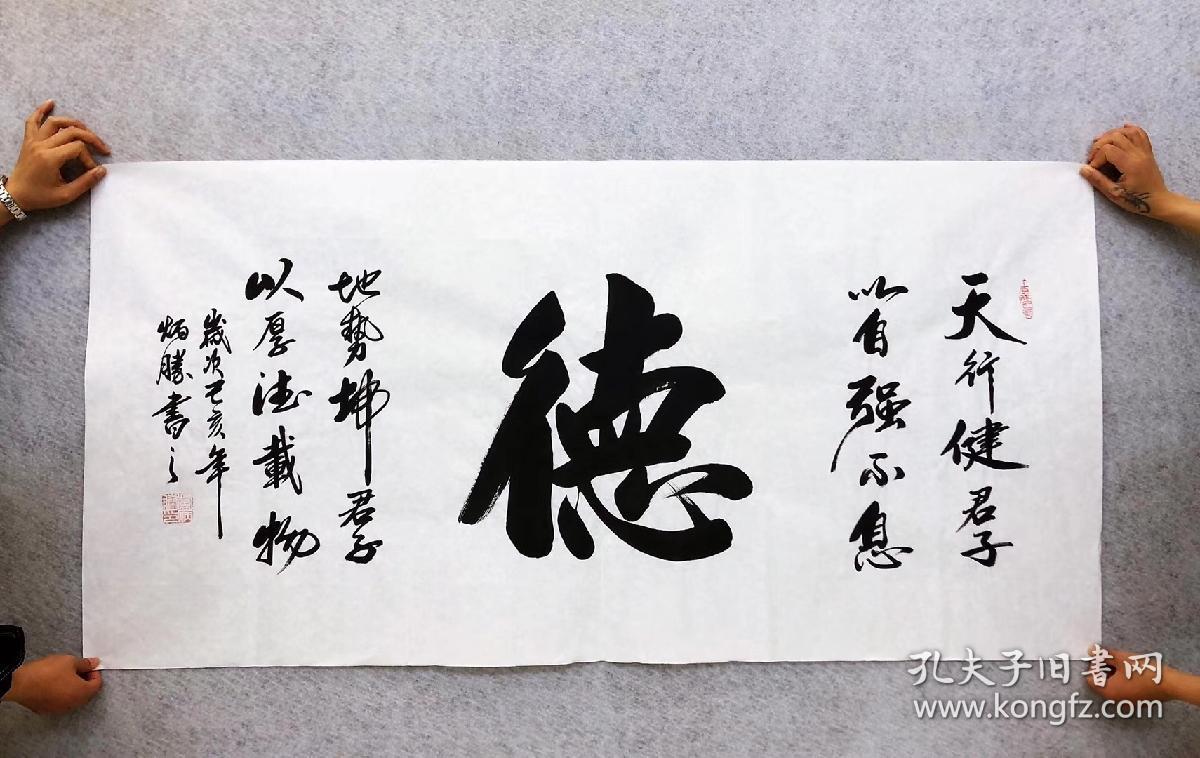 天行健君子
以自强不息
德
地势坤君子
以厚德载物
歲次己亥年
炳勝書之
孔夫子旧书网
www.kongfz.com